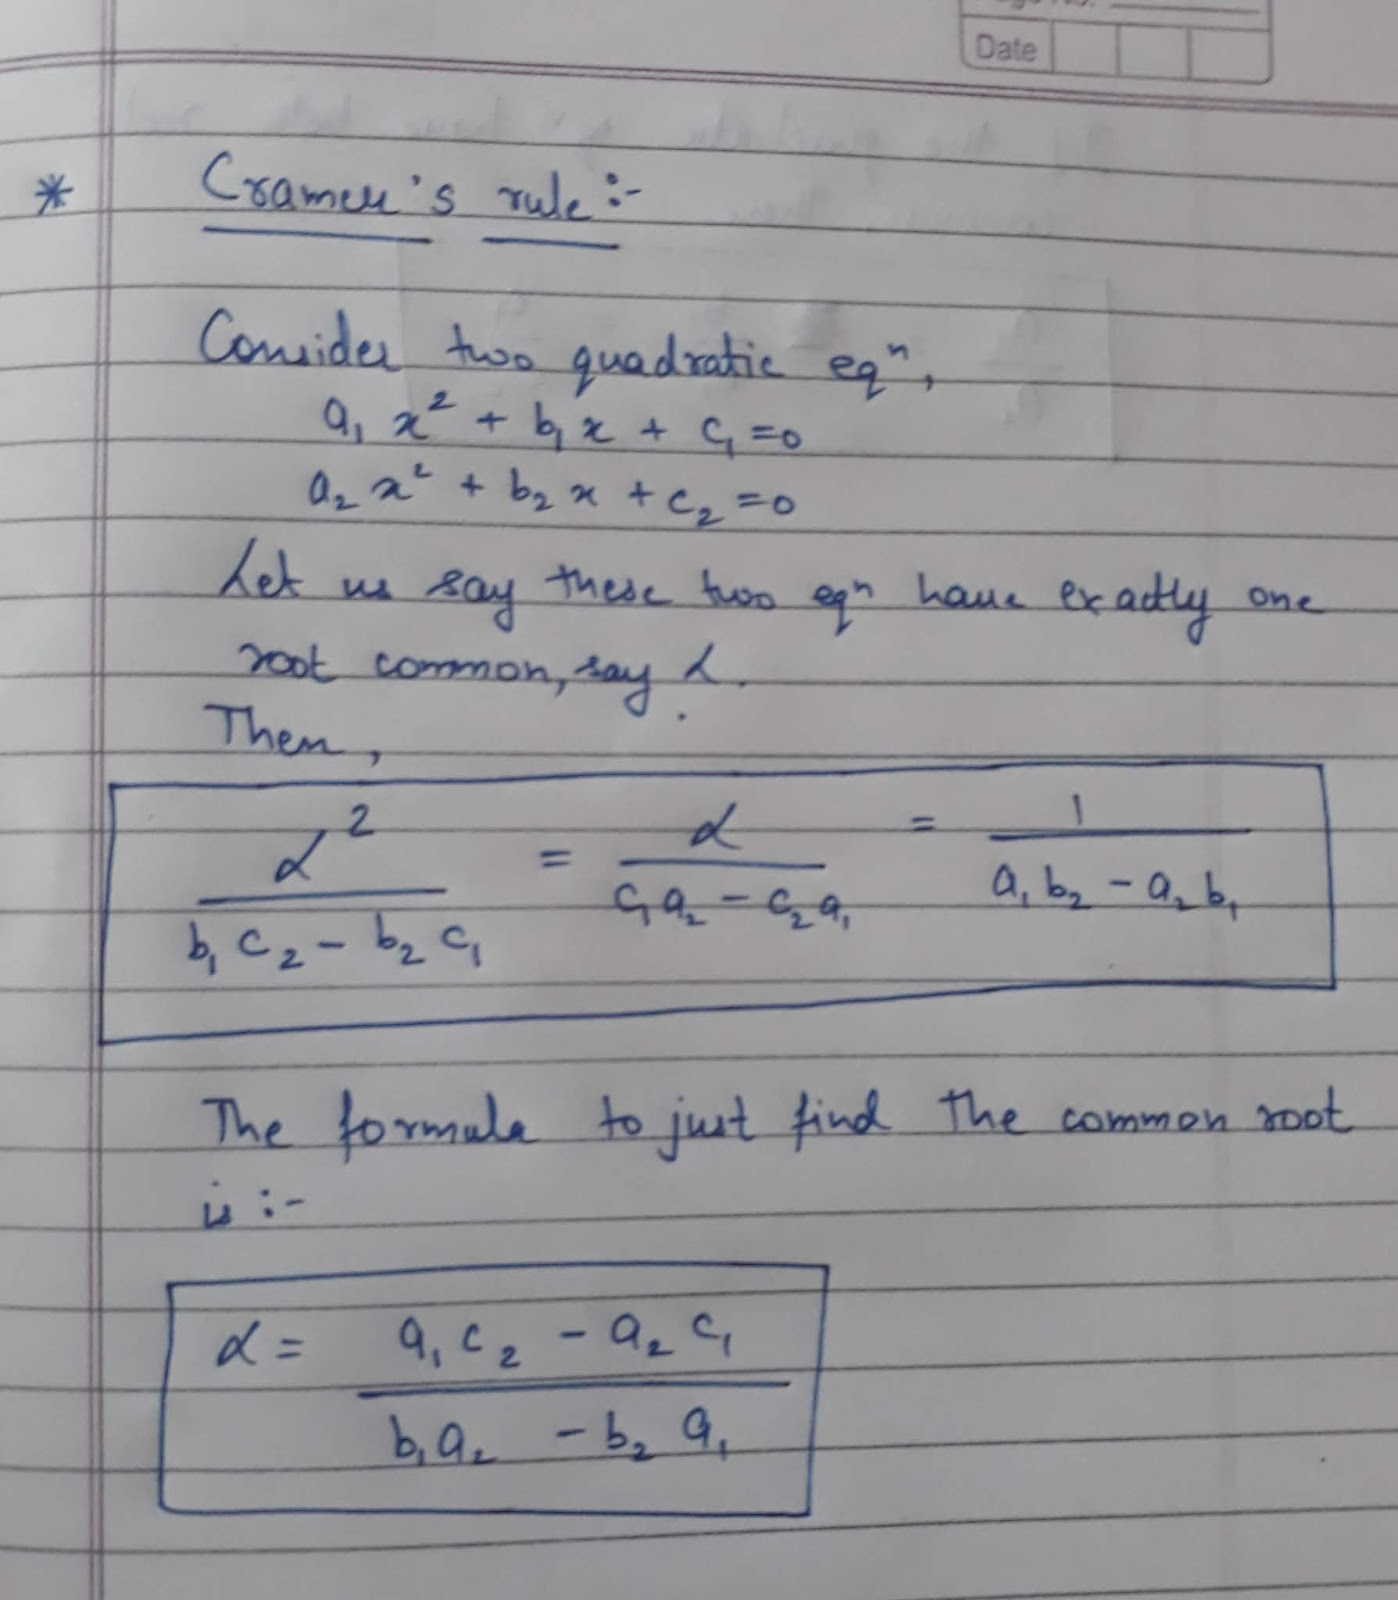 Date
* Cramer's rule :-
Consider two quadratic eqⁿ,
a₁ x² + b₁ x + c₁ = 0
a₂ x² + b₂ x + c₂ = 0
Let us say these two eqⁿ have exactly one
root common, say α.
Then,
α² / (b₁ c₂ - b₂ c₁) = α / (c₁ a₂ - c₂ a₁) = 1 / (a₁ b₂ - a₂ b₁)
The formula to just find the common root
is :-
α = (a₁ c₂ - a₂ c₁) / (b₁ a₂ - b₂ a₁)